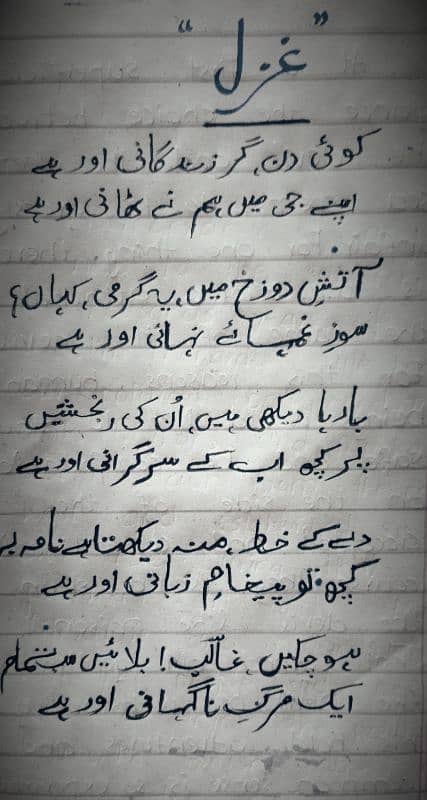 "غزل"
کوئی دن، گر زندگانی اور ہے
اپنے جی میں، ہم نے ٹھانی اور ہے
آتشِ دوزخ میں، یہ گرمی، کہاں؟
سوزِ غمہائے نہانی اور ہے
بارہا دیکھی ہیں، اُن کی رنجشیں
پر کچھ اب کے سرگرانی اور ہے
دے کے خط، منہ دیکھتا ہے نامہ بر
کچھ تو پیغامِ زبانی اور ہے
ہو چکیں، غالبؔ! بلائیں سب تمام
ایک مرگِ ناگہانی اور ہے